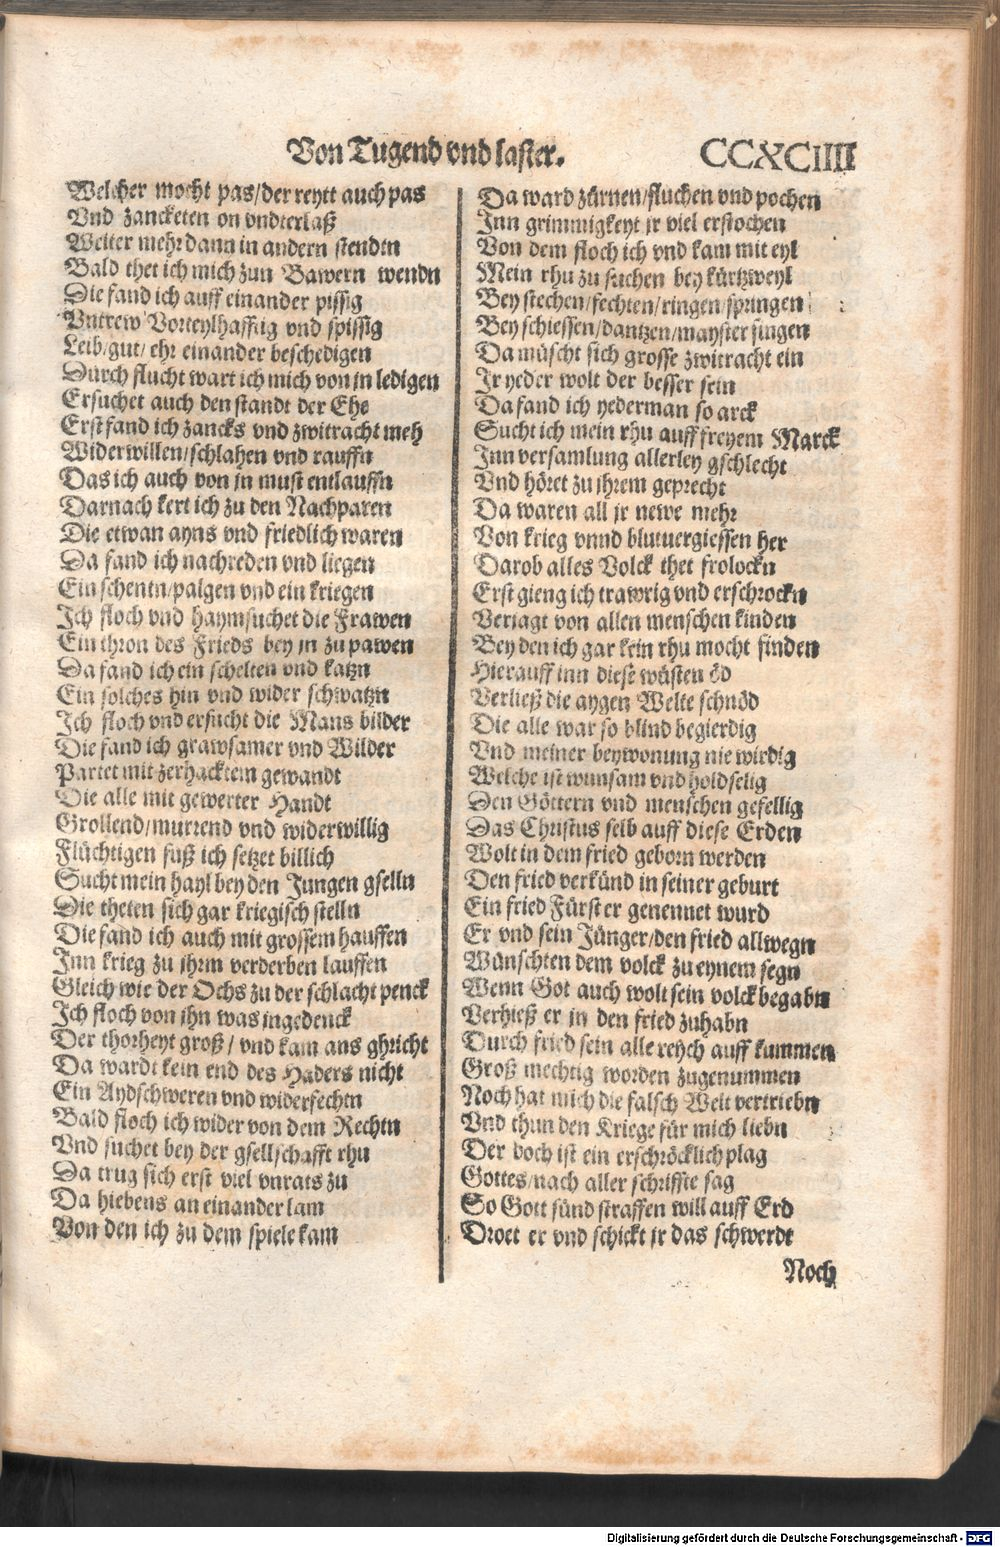 Von Tugend vnd laster.
CCXCIIII
Welcher mocht pas/der reytt auch pas
Vnd zancketen on vndterlaß
Weiter mehr dann in andern stendtn
Bald thet ich mich zun Bawern wendn
Die fand ich auff einander pissig
Vntrew Vorteylhafftig vnd spissig
Leib/gut/ ehr einander beschedigen
Durch flucht wart ich mich von in ledigen
Ersuchet auch den standt der Ehe
Erst fand ich zancks vnd zwitracht meh
Widerwillen/schlahen vnd rauffn
Das ich auch von jn must entlauffn
Darnach kert ich zu den Nachparen
Die etwan ayns vnd friedlich waren
Da fand ich nachreden vnd liegen
Ein schentn/palgen vnd ein kriegen
Ich floch vnd haymsuchet die Frawen
Ein thron des Frieds bey jn zu pawen
Da fand ich ein schelten vnd katzn
Ein solches hin vnd wider schwatzn
Ich floch vnd ersucht die Mans bilder
Die fand ich grawsamer vnd Wilder
Partet mit zerhacktem gewandt
Die alle mit gewerter Handt
Grollend/murrend vnd widerwillig
Flüchtigen fuß ich setzet billich
Sucht mein hayl bey den Jungen gselln
Die theten sich gar kriegisch stelln
Die fand ich auch mit grossem hauffen
Inn krieg zu jhrm verderben lauffen
Gleich wie der Ochs zu der schlacht penck
Ich floch von jhn was ingedenck
Der thorheyt groß/ vnd kam ans ghricht
Da wardt kein end des Haders nicht
Ein Aydschweren vnd widerfechtn
Bald floch ich wider von dem Rechtn
Vnd suchet bey der gsellschafft rhu
Da trug sich erst viel vnrats zu
Da hiebens an einander lam
Von den ich zu dem spiele kam
Da ward zürnen/fluchen vnd pochen
Inn grimmigkeyt jr viel erstochen
Von dem floch ich vnd kam mit eyl
Mein rhu zu suchen bey kürtzweyl
Bey stechen/fechten/ringen/springen
Bey schiessen/dantzen/mayster singen
Da müscht sich grosse zwitracht ein
Jr yeder wolt der besser sein
Da fand ich yederman so arck
Sucht ich mein rhu auff freyem Marck
Inn versamlung allerley gschlecht
Vnd höret zu jhrem geprecht
Da waren all jr newe mehr
Von krieg vnnd blutuergiessen her
Darob alles Volck thet frolockn
Erst gieng ich trawrig vnd erschrockn
Veriagt von allen menschen kinden
Bey den ich gar kein rhu mocht finden
Hierauff inn diese wüsten öd
Verließ die aygen Welte schnöd
Die alle war so blind begierdig
Vnd meiner beywonung nie wirdig
Welche ist wunsam vnd holdselig
Den Göttern vnd menschen gefellig
Das Christus selb auff diese Erden
Wolt in dem fried geborn werden
Den fried verkünd in seiner geburt
Ein fried Fürst er genennet wurd
Er vnd sein Jünger/den fried allwegn
Wünschten dem volck zu eynem segn
Wenn Got auch wolt sein volck begabn
Verhieß er jn den fried zuhabn
Durch fried sein alle reych auff kummen
Groß mechtig worden zugenummen
Noch hat mich die falsch Welt vertriebn
Vnd thun den Kriege für mich liebn
Der doch ist ein erschröcklich plag
Gottes/nach aller schriffte sag
So Gott sünd straffen will auff Erd
Droet er vnd schickt jr das schwerdt
Noch
Digitalisierung gefördert durch die Deutsche Forschungsgemeinschaft - DFG